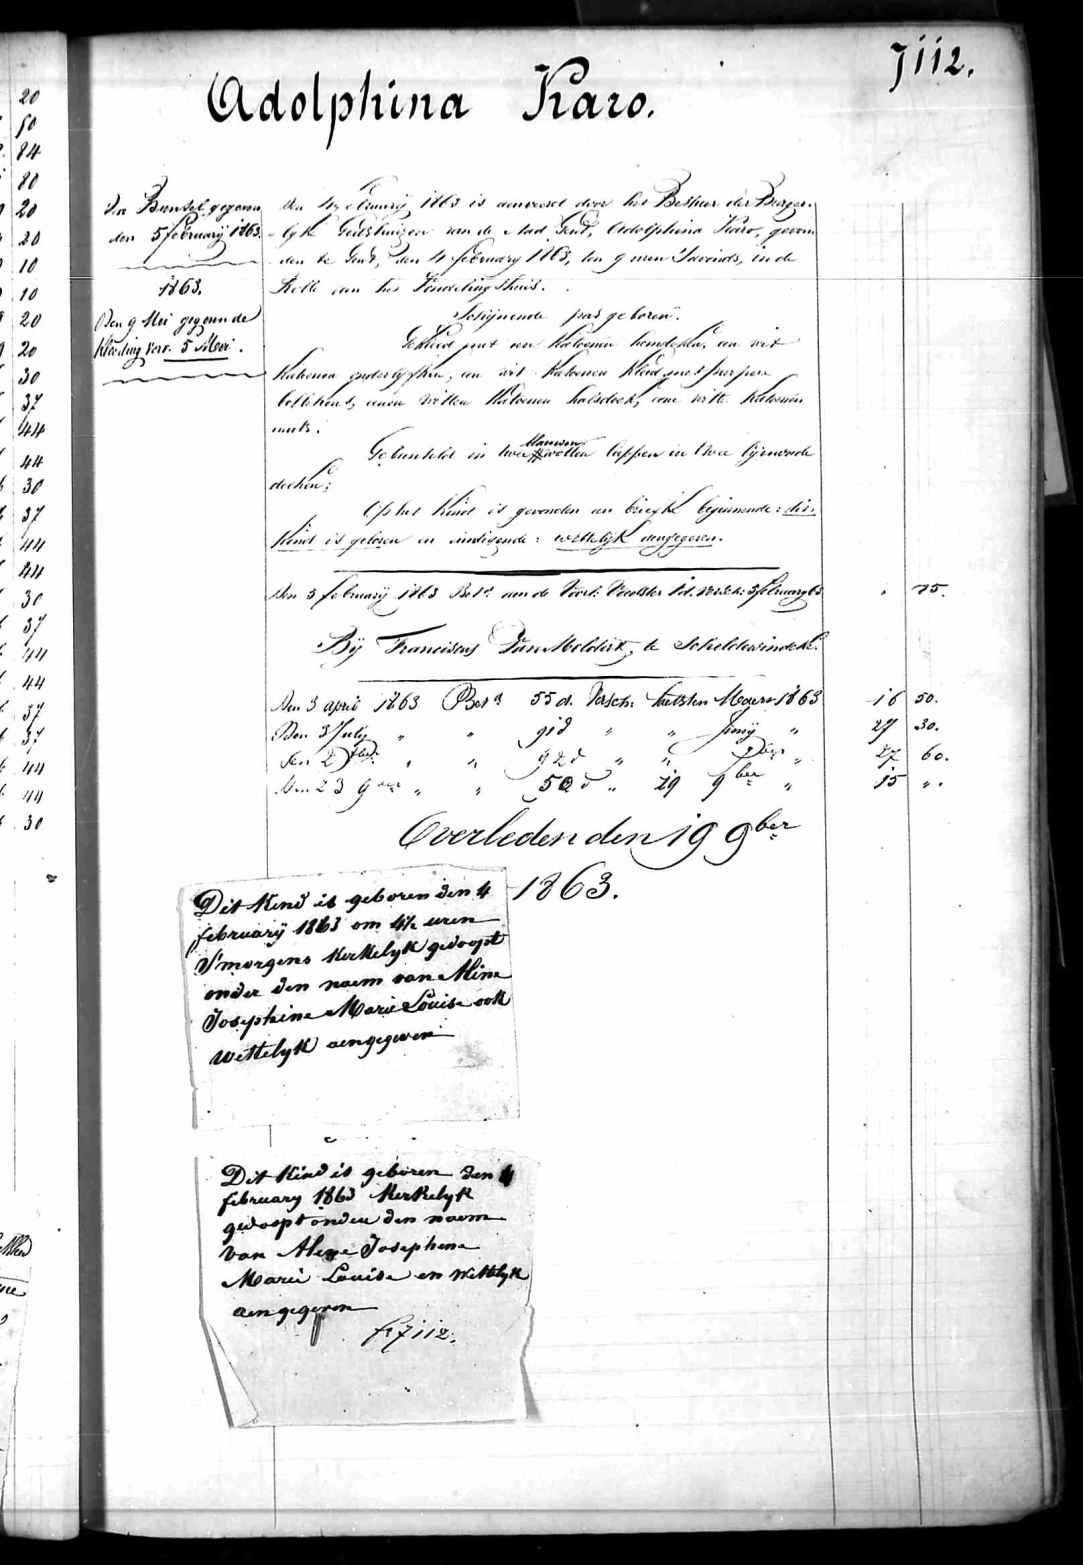 7112.
Adolphina Karo.
den Bundel gegeven
den 5 february 1863.
1863.
Den 9 Mei gegeven de
kleeding verv. 5 Mei.
den 4 february 1863 is aenveerd door het Bestuer der Burger-
lyke Godshuizen van de stad Gent, Adolphina Karo, gevon-
den te Gent, den 4 february 1863, ten 9 uren s'avonds, in de
Rolle van het Vondelingshuis.
Schynende pas geboren.
Gekleed met een Katoenen hemdeken, een wit
Katoenen onderlyfken, een wit Katoenen Kleed met purpere
bollekens, eenen witten Katoenen halsdoek, eene witte Katoenen
muts.
Gebunseld in twee blauwen wollen lappen in twee lynwaede
doeken;
Op het Kind is gevonden een briefke beginnende: dit
Kind is geboren en eindigende: wettelyk aengegeven.
den 5 february 1863 Bet. aen de Voorl. Voedster tot versch. 5 february 63 " 75.
By Franciscus Van Molders, te Scheldewindeke.
Den 3 april 1863 Bet. 55 d. Versch. laetsten Maert 1863 16 50.
Den 3 July " " 91 d " " Juny " 27 30.
den 2 8ber " " 92 d " " 7ber " 27 60.
den 23 9ber " " 50 d " 19 9ber " 15 ".
Overleden den 19 9ber
1863.
Dit Kend is geboren den 4
february 1863 om 4½ uren
s'morgens Kerkelyk gedoopt
onder den naem van Aline
Josephine Marie Louise ook
wettelyk aengegeven
Dit Kind is geboren den 4
february 1863 Kerkelyk
gedoopt onder den naem
van Alene Josephene
Marei Louise en wettelyk
aengegeven
f° 7112.
20
50
84
80
20
20
10
10
20
20
30
37
44
44
30
37
44
44
30
37
44
44
37
37
44
44
30